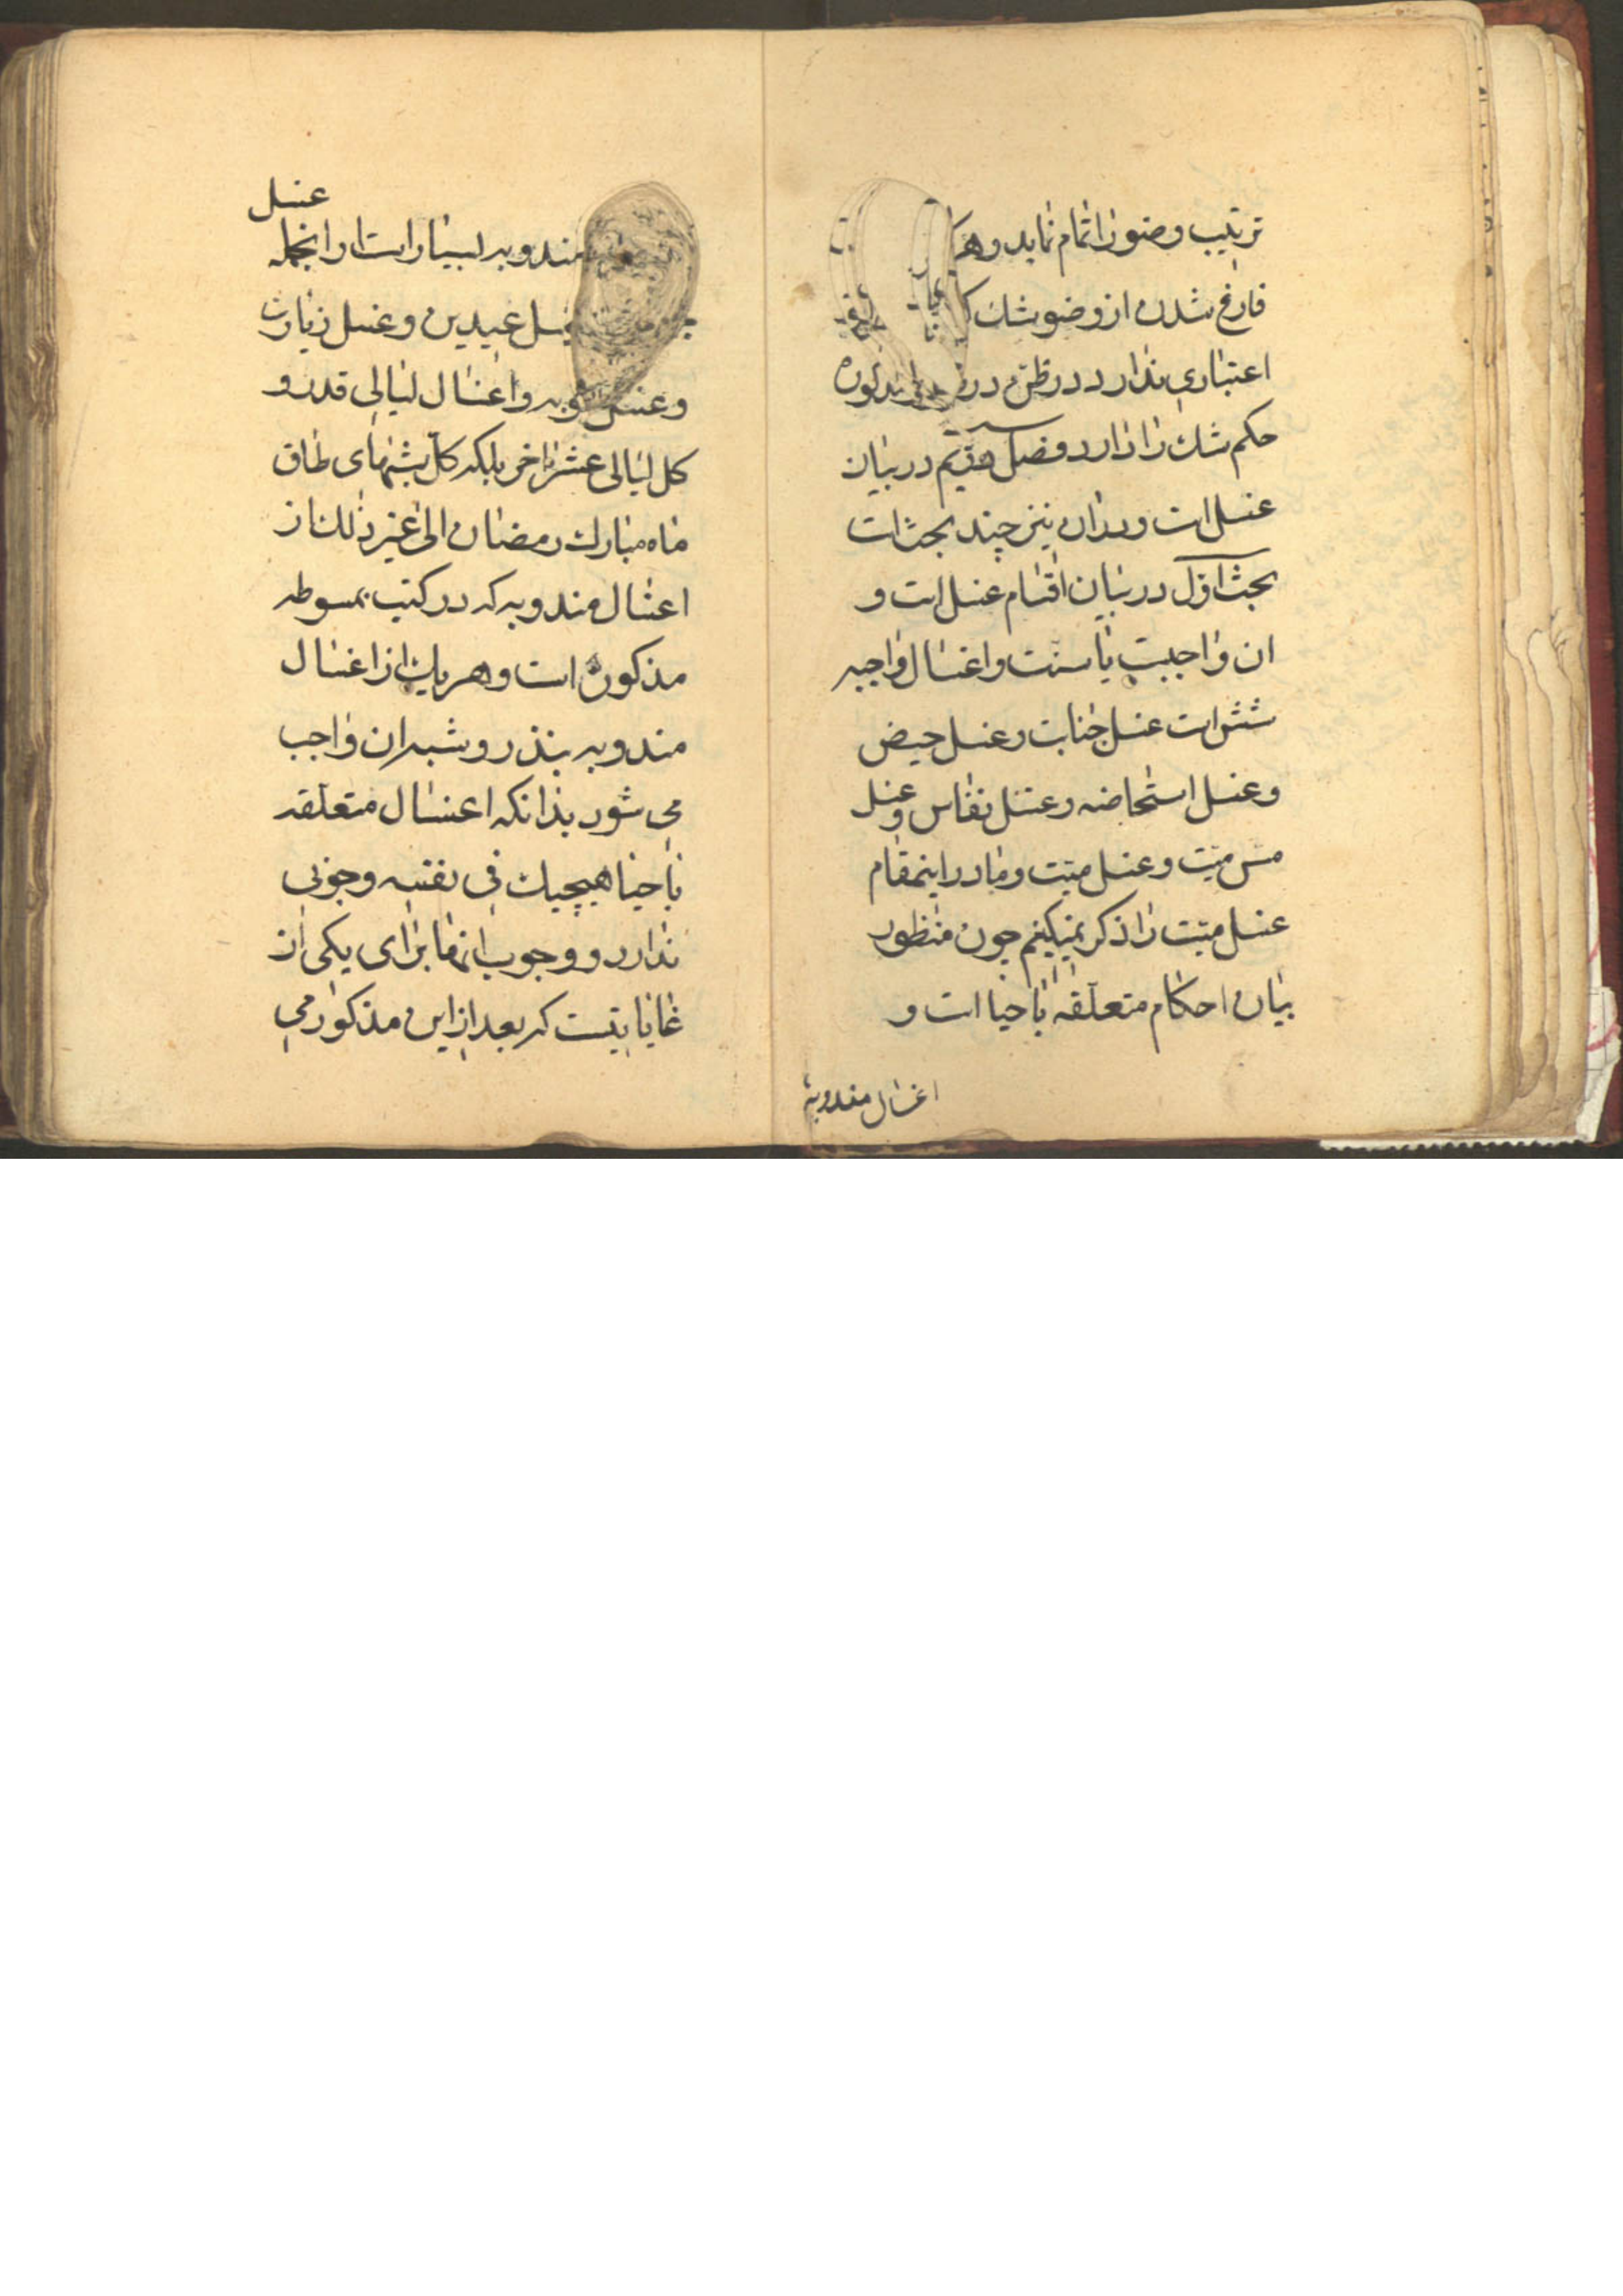 ترتیب وضو را تمام نماید و هر
فارغ شدن از وضو شک
اعتباری ندارد و در ظن در مذکوره
حکم شک را دارد فصل هفتم در بیان
غسل است و در ان نیز چند بحث است
بحث اول در بیان اقسام غسل است و
ان واجبست یا سنت و اغسال واجبه
شش است غسل جنابت و غسل حیض
و غسل استحاضه و غسل نفاس و غسل
مس میت و غسل میت و ما در اینمقام
غسل میت را ذکر نمیکنیم چون منظور
بیان احکام متعلقه باحیا است و
اغسال مندوبه
مندوبه بسیار است از انجمله غسل
غسل عیدین و غسل زیارت
و غسل توبه و اغسال لیالی قدر و
کل لیالی عشر اخر بلکه کل شبهای طاق
ماه مبارک رمضان الی غیر ذلک از
اغسال مندوبه که در کتب مبسوطه
مذکوره است و هر یک از اغسال
مندوبه بنذر و شبه ان واجب
می شود بدانکه اغسال متعلقه
باحیا هیچیک فی نفسه وجوبی
ندارد و وجوب انها برای یکی از
غایاتیست که بعد از این مذکور می